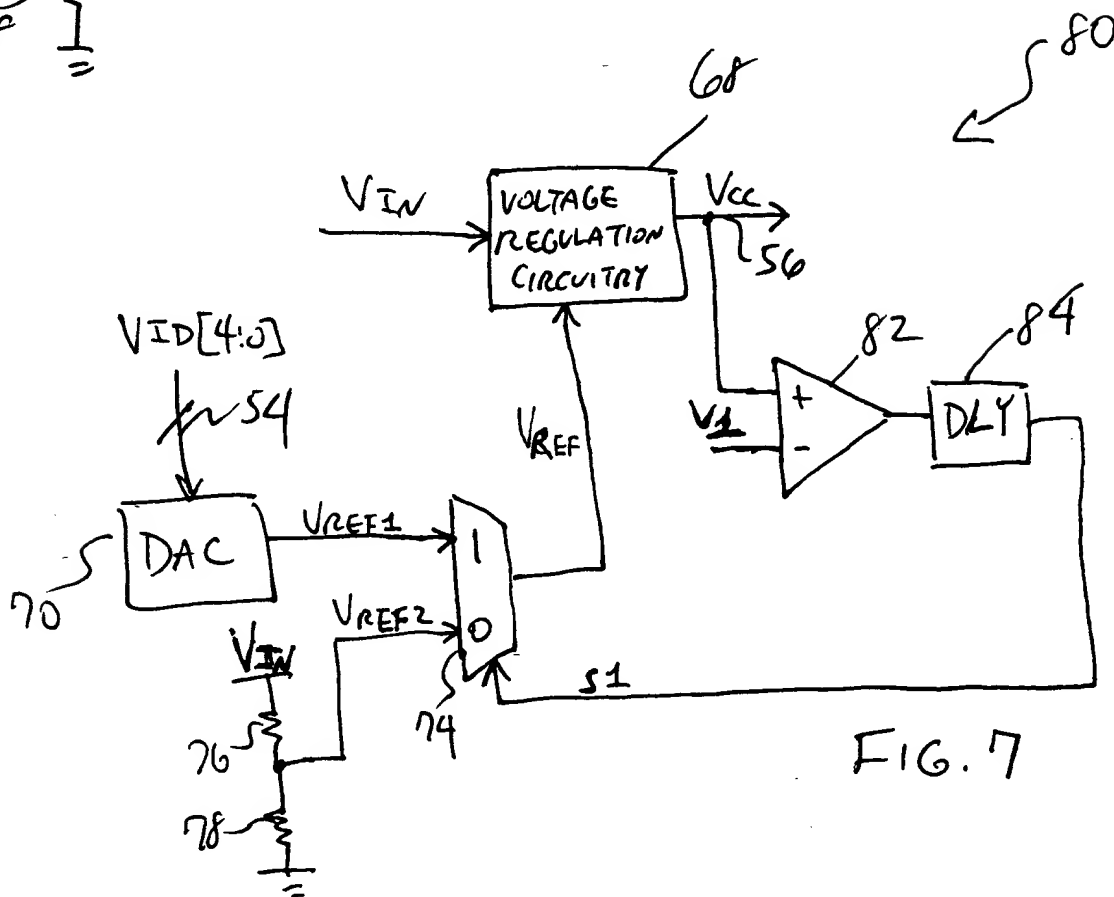 80
68
VIN
VOLTAGE
REGULATION
CIRCUITRY
VCC
56
VID[4:0]
54
82
84
+
V1
-
DLY
VREF
DAC
70
VREF1
1
VREF2
0
VIN
74
S1
76
78
FIG. 7